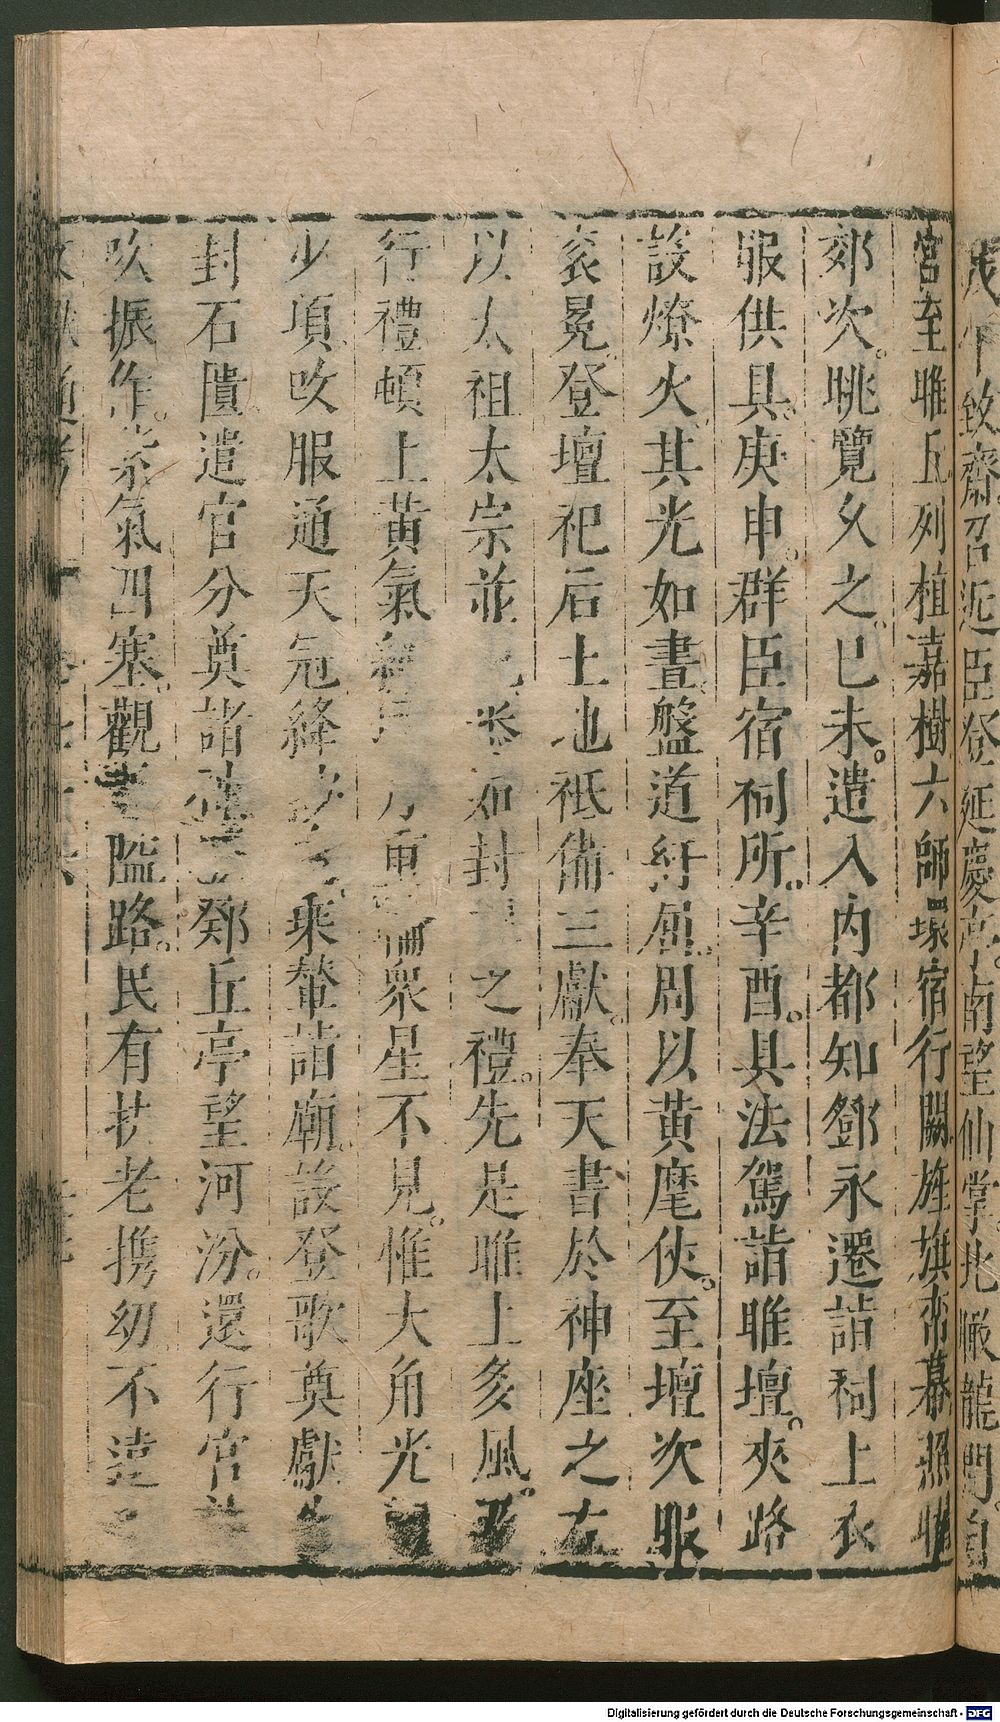 戊午致齋召近臣登延慶亭南望仙掌北瞰龍門自
宮至脽丘列植嘉樹六師環宿行闕旌旗帟幕照
郊次。眺覽久之。己未。遣入內都知鄧永遷詣祠上衣
服供具。庚申。群臣宿祠所。辛酉。具法駕詣脽壇。夾路
設燎火其光如晝。盤道紆屈。周以黃麾仗。至壇次服
袞冕。登壇祀后土地祇備三獻。奉天書於神座之左
以太祖太宗並 如封 之禮。先是脽上多風。
行禮頓止黃氣 重 衆星不見。惟大角光
少頃改服通天冠絳 乘輦詣廟。設登歌奠獻
封石匱遣官分奠諸 鄈丘亭望河汾。還行宮
吹振作。紫氣四塞。觀 隘路。民有扶老携幼不遠
通考
Digitalisierung gefördert durch die Deutsche Forschungsgemeinschaft - DFG